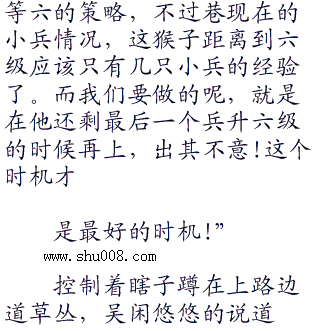 等六的策略，不过巷现在的
小兵情况，这猴子距离到六
级应该只有几只小兵的经验
了。而我们要做的呢，就是
在他还剩最后一个兵升六级
的时候再上，出其不意!这个
时机才
是最好的时机!”
www.shu008.com
控制着瞎子蹲在上路边
道草丛，吴闲悠悠的说道